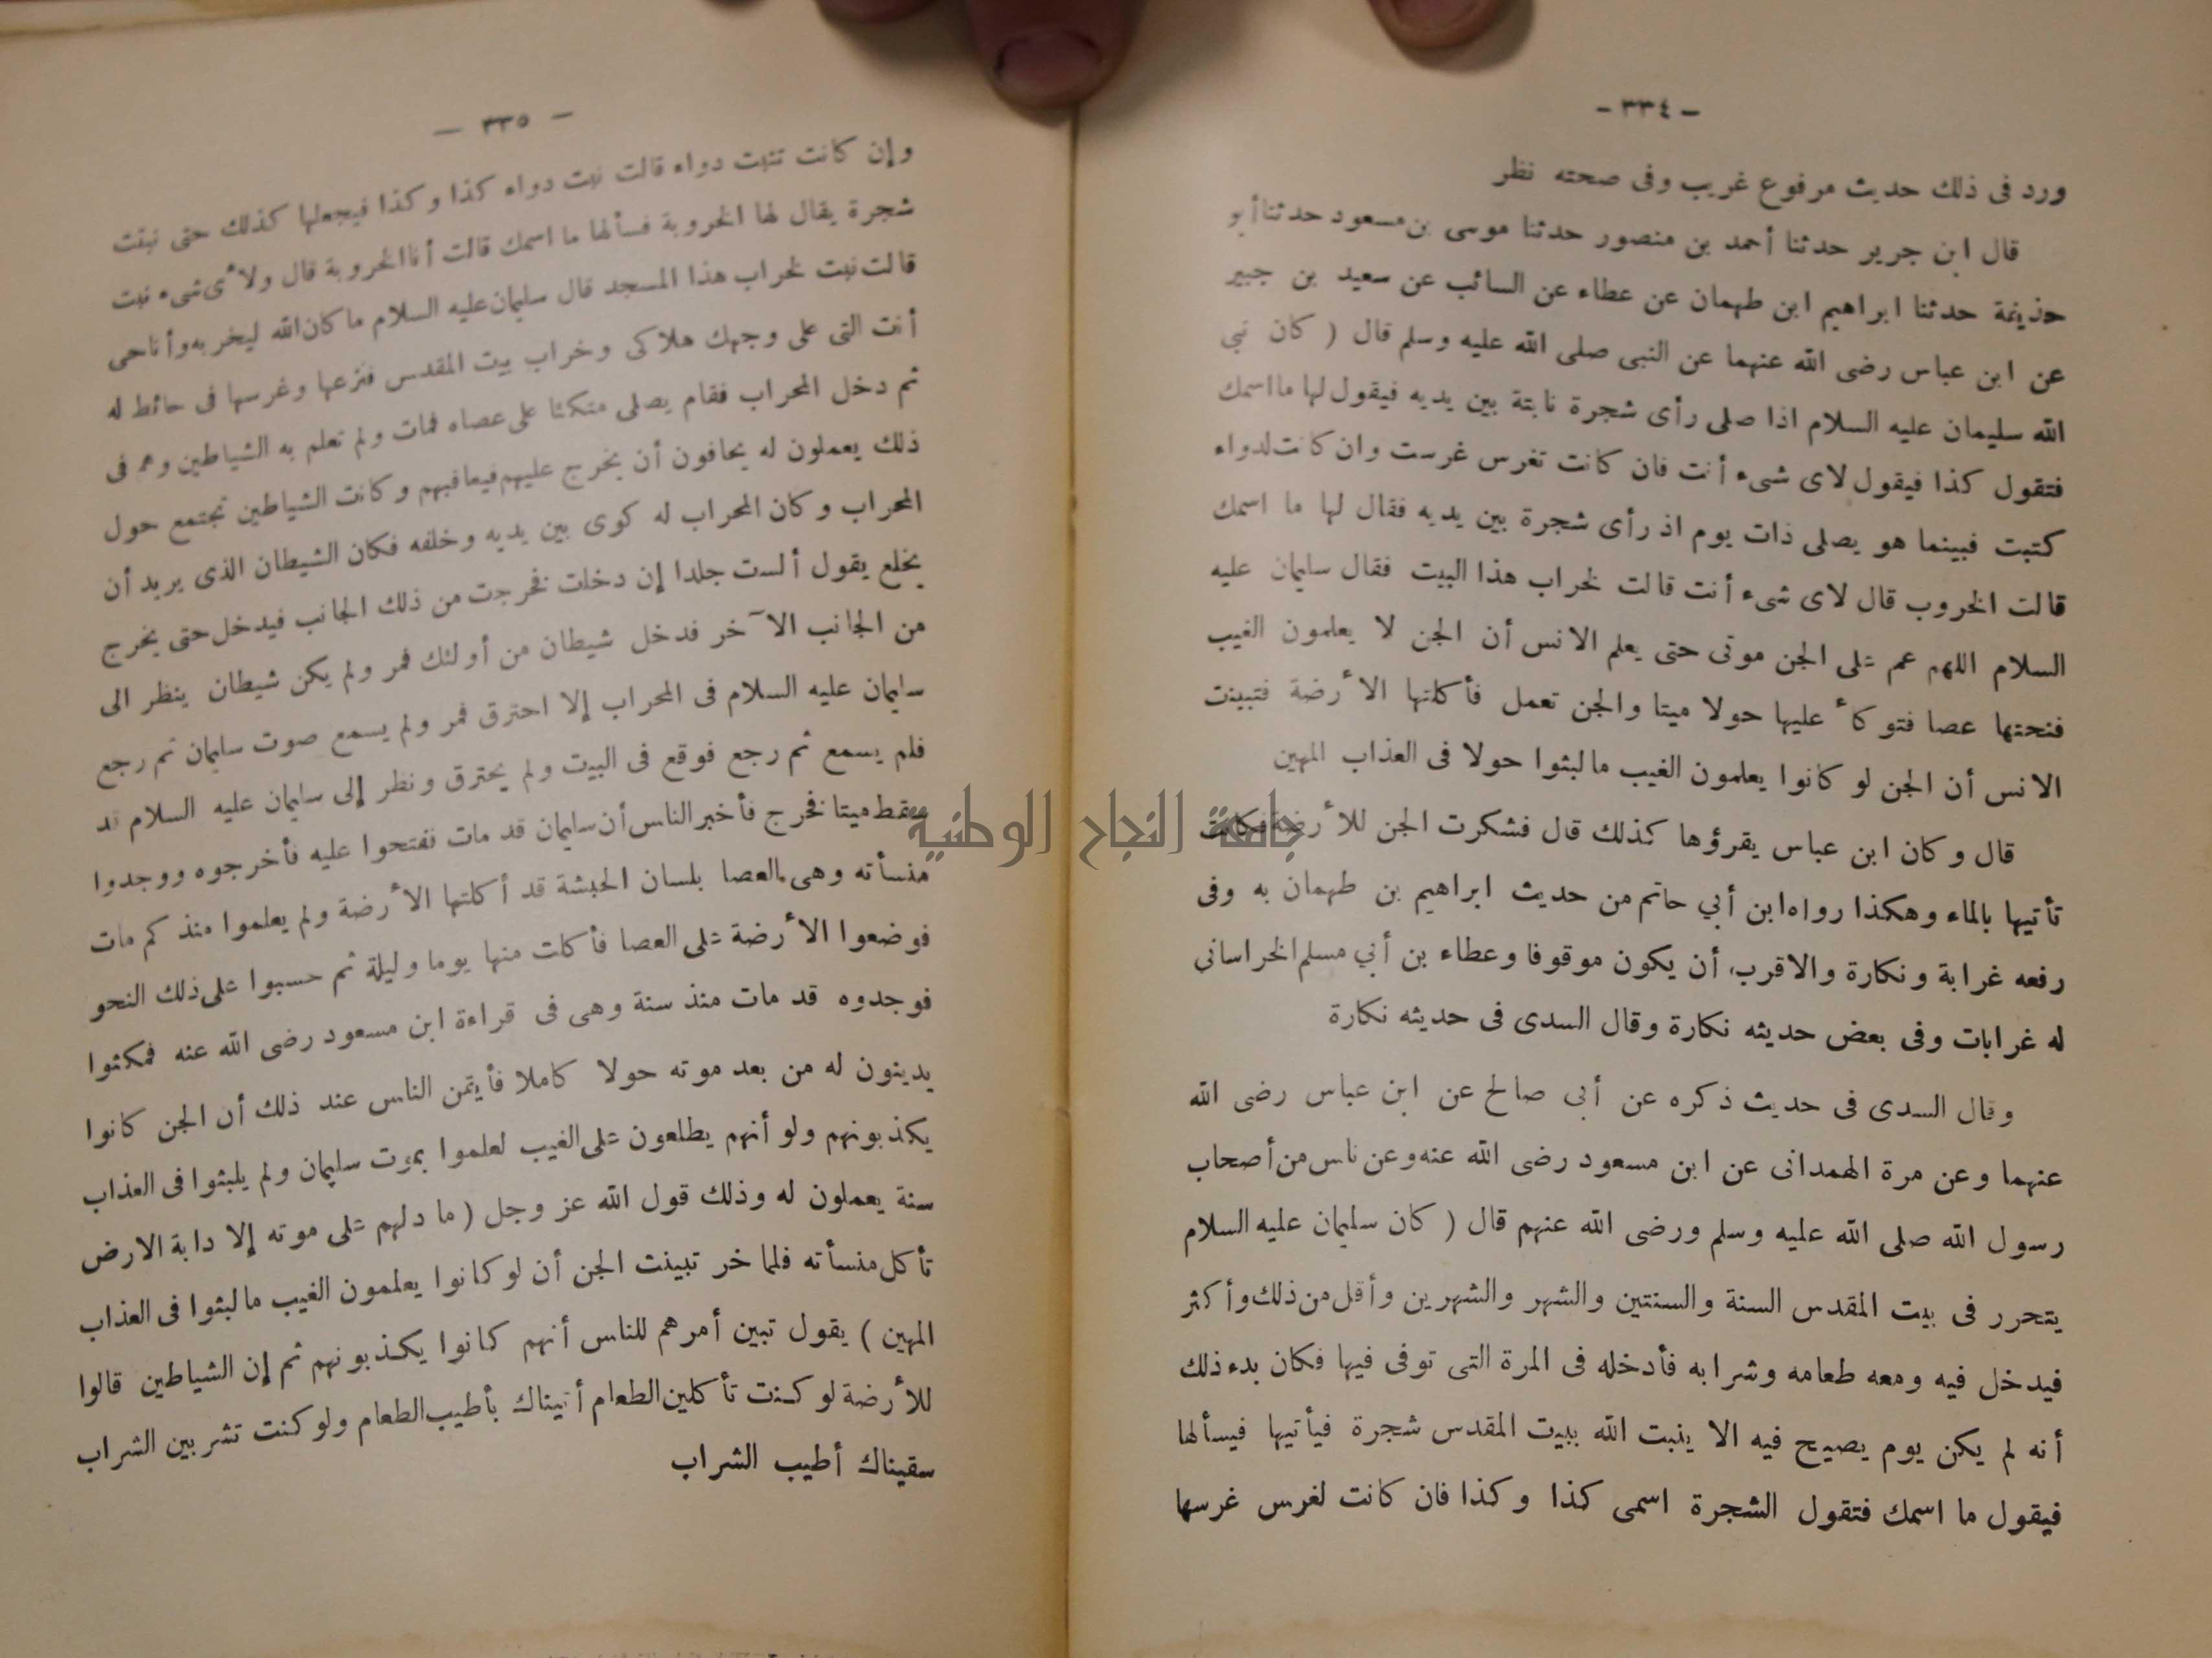 - ٣٣٤ -
ورد فى ذلك حديث مرفوع غريب وفى صحته نظر
قال ابن جرير حدثنا أحمد بن منصور حدثنا موسى بن مسعود حدثنا أبو
حذيفة حدثنا ابراهيم ابن طهمان عن عطاء عن السائب عن سعيد بن جبير
عن ابن عباس رضى الله عنهما عن النبى صلى الله عليه وسلم قال ( كان نبي
الله سليمان عليه السلام اذا صلى رأى شجرة نابتة بين يديه فيقول لها ما اسمك
فتقول كذا فيقول لاى شىء أنت فان كانت تغرس غرست وان كانت لدواء
كتبت فبينما هو يصلى ذات يوم اذ رأى شجرة بين يديه فقال لها ما اسمك
قالت الخروب قال لاى شىء أنت قالت لخراب هذا البيت فقال سليمان عليه
السلام اللهم عم على الجن موتى حتى يعلم الانس أن الجن لا يعلمون الغيب
فنحتها عصا فتوكأ عليها حولا ميتا والجن تعمل فأكلتها الأرضة فتبينت
الانس أن الجن لو كانوا يعلمون الغيب ما لبثوا حولا فى العذاب المهين
قال وكان ابن عباس يقرؤها كذلك قال فشكرت الجن للأرضة فكانت
تأتيها بالماء وهكذا رواه ابن أبي حاتم من حديث ابراهيم بن طهمان به وفى
رفعه غرابة ونكارة والاقرب أن يكون موقوفا وعطاء بن أبي مسلم الخراسانى
له غرابات وفى بعض حديثه نكارة وقال السدى فى حديثه نكارة
وقال السدى فى حديث ذكره عن أبى صالح عن ابن عباس رضى الله
عنهما وعن مرة الهمدانى عن ابن مسعود رضى الله عنه وعن ناس من أصحاب
رسول الله صلى الله عليه وسلم ورضى الله عنهم قال ( كان سليمان عليه السلام
يتحرر فى بيت المقدس السنة والسنتين والشهر والشهرين وأقل من ذلك وأكثر
فيدخل فيه ومعه طعامه وشرابه فأدخله فى المرة التى توفى فيها فكان بدء ذلك
أنه لم يكن يوم يصبح فيه الا ينبت الله ببيت المقدس شجرة فيأتيها فيسألها
فيقول ما اسمك فتقول الشجرة اسمى كذا وكذا فان كانت لغرس غرسها
— ٣٣٥ —
وإن كانت تنبت دواء قالت نبت دواء كذا وكذا فيجعلها كذلك حتى نبتت
شجرة يقال لها الخروبة فسألها ما اسمك قالت أنا الخروبة قال ولأى شىء نبت
قالت نبت لخراب هذا المسجد قال سليمان عليه السلام ما كان الله ليخربه وأنا حى
أنت التى على وجهك هلاكى وخراب بيت المقدس فنزعها وغرسها فى حائط له
ثم دخل المحراب فقام يصلى متكئا على عصاه فمات ولم تعلم به الشياطين وهم فى
ذلك يعملون له يخافون أن يخرج عليهم فيعاقبهم وكانت الشياطين تجتمع حول
المحراب وكان المحراب له كوى بين يديه وخلفه فكان الشيطان الذى يريد أن
يخلع يقول ألست جلدا إن دخلت فخرجت من ذلك الجانب فيدخل حتى يخرج
من الجانب الآخر فدخل شيطان من أولئك فمر ولم يكن شيطان ينظر الى
سليمان عليه السلام فى المحراب إلا احترق فمر ولم يسمع صوت سليمان ثم رجع
فلم يسمع ثم رجع فوقع فى البيت ولم يحترق ونظر إلى سليمان عليه السلام قد
سقط ميتا فخرج فأخبر الناس أن سليمان قد مات ففتحوا عليه فأخرجوه ووجدوا
منسأته وهى العصا بلسان الحبشة قد أكلتها الأرضة ولم يعلموا منذ كم مات
فوضعوا الأرضة على العصا فأكلت منها يوما وليلة ثم حسبوا على ذلك النحو
فوجدوه قد مات منذ سنة وهى فى قراءة ابن مسعود رضى الله عنه فمكثوا
يدينون له من بعد موته حولا كاملا فأيقن الناس عند ذلك أن الجن كانوا
يكذبونهم ولو أنهم يطلعون على الغيب لعلموا بموت سليمان ولم يلبثوا فى العذاب
سنة يعملون له وذلك قول الله عز وجل ( ما دلهم على موته إلا دابة الارض
تأكل منسأته فلما خر تبينت الجن أن لو كانوا يعلمون الغيب ما لبثوا فى العذاب
المهين ) يقول تبين أمرهم للناس أنهم كانوا يكذبونهم ثم إن الشياطين قالوا
للأرضة لو كنت تأكلين الطعام أتيناك بأطيب الطعام ولو كنت تشربين الشراب
سقيناك أطيب الشراب
جامعة النجاح الوطنية